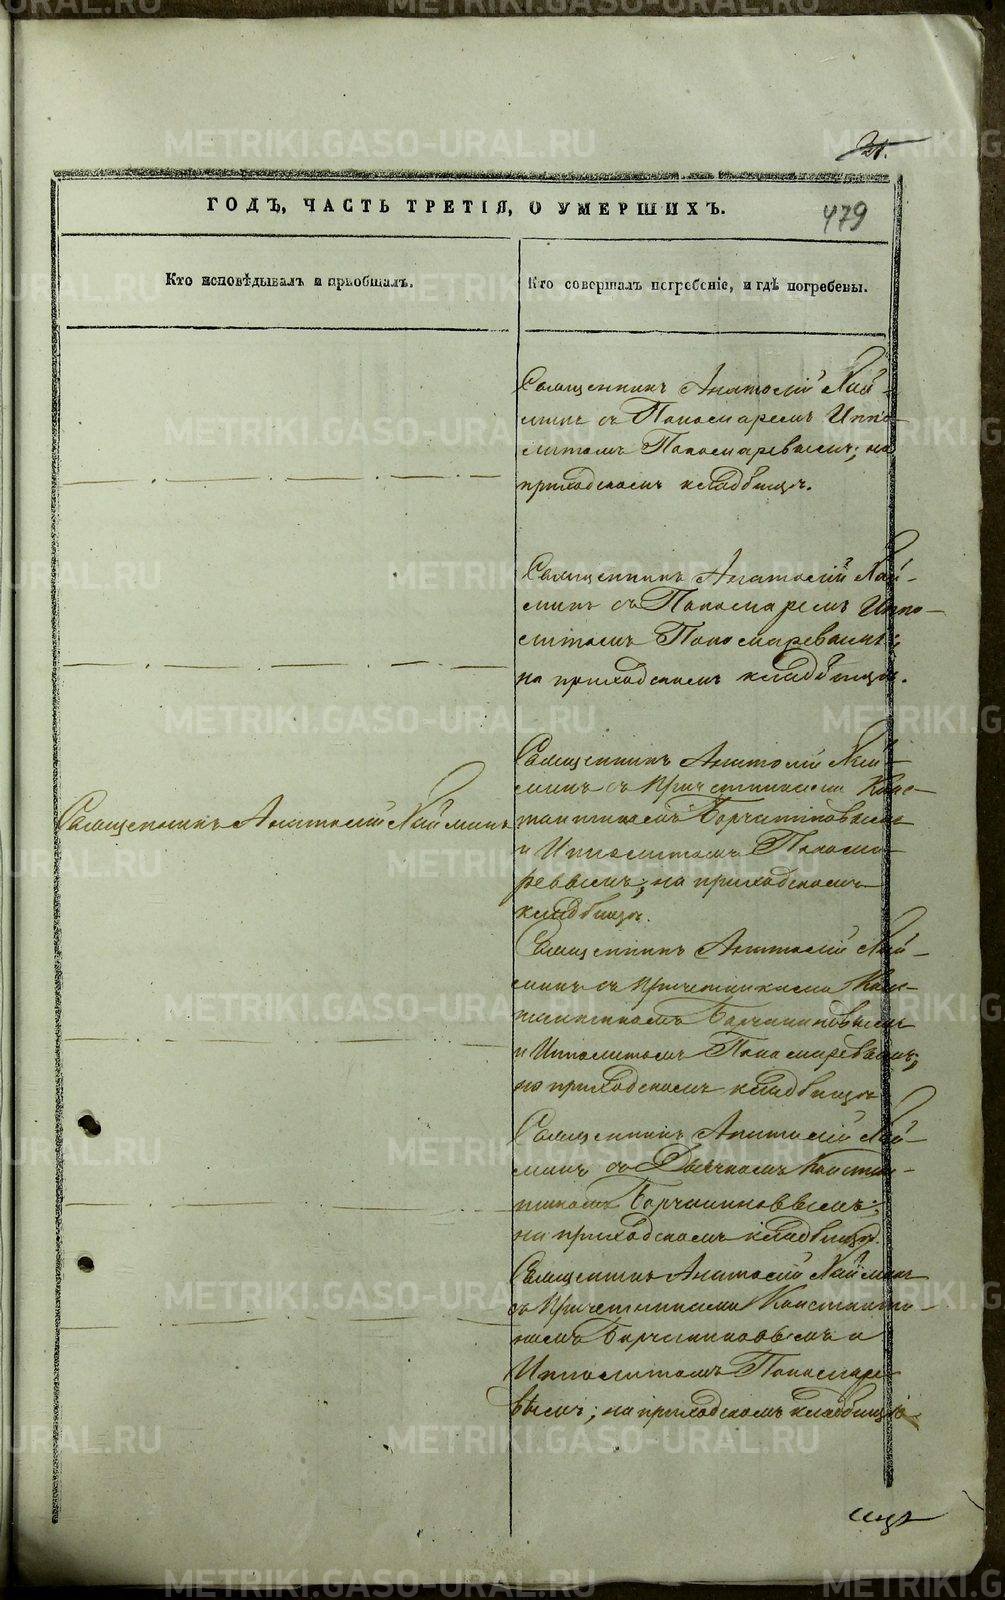 21.
ГОДЪ, ЧАСТЬ ТРЕТІЯ, О УМЕРШИХЪ.
479
Кто исповѣдывалъ и пріобщалъ.
Кто совершалъ погребеніе, и гдѣ погребены.
Священникъ Анатолій Хай-
минъ съ Пономаремъ Иппо-
литомъ Пономаревымъ; на
приходскомъ кладбищѣ.
Священникъ Анатолій Хай-
минъ съ Пономаремъ Иппо-
литомъ Пономаревымъ;
на приходскомъ кладбищѣ.
Священникъ Анатолій Хайминъ
Священникъ Анатолій Хай-
минъ съ причетниками Конс-
тантиномъ
и Ипполитомъ Понома-
ревымъ; на приходскомъ
кладбищѣ.
Священникъ Анатолій Хай-
минъ съ причетниками Конс-
тантиномъ
и Ипполитомъ Пономаревымъ;
на приходскомъ кладбищѣ
Священникъ Анатолій Хай-
минъ съ Дьячкомъ Констан-
тиномъ
на приходскомъ кладбищѣ.
Священникъ Анатолій Хайминъ
съ Причетниками Константи-
номъ и
Ипполитомъ Пономаре-
вымъ; на приходскомъ кладбищѣ
METRIKI.GASO-URAL.RU